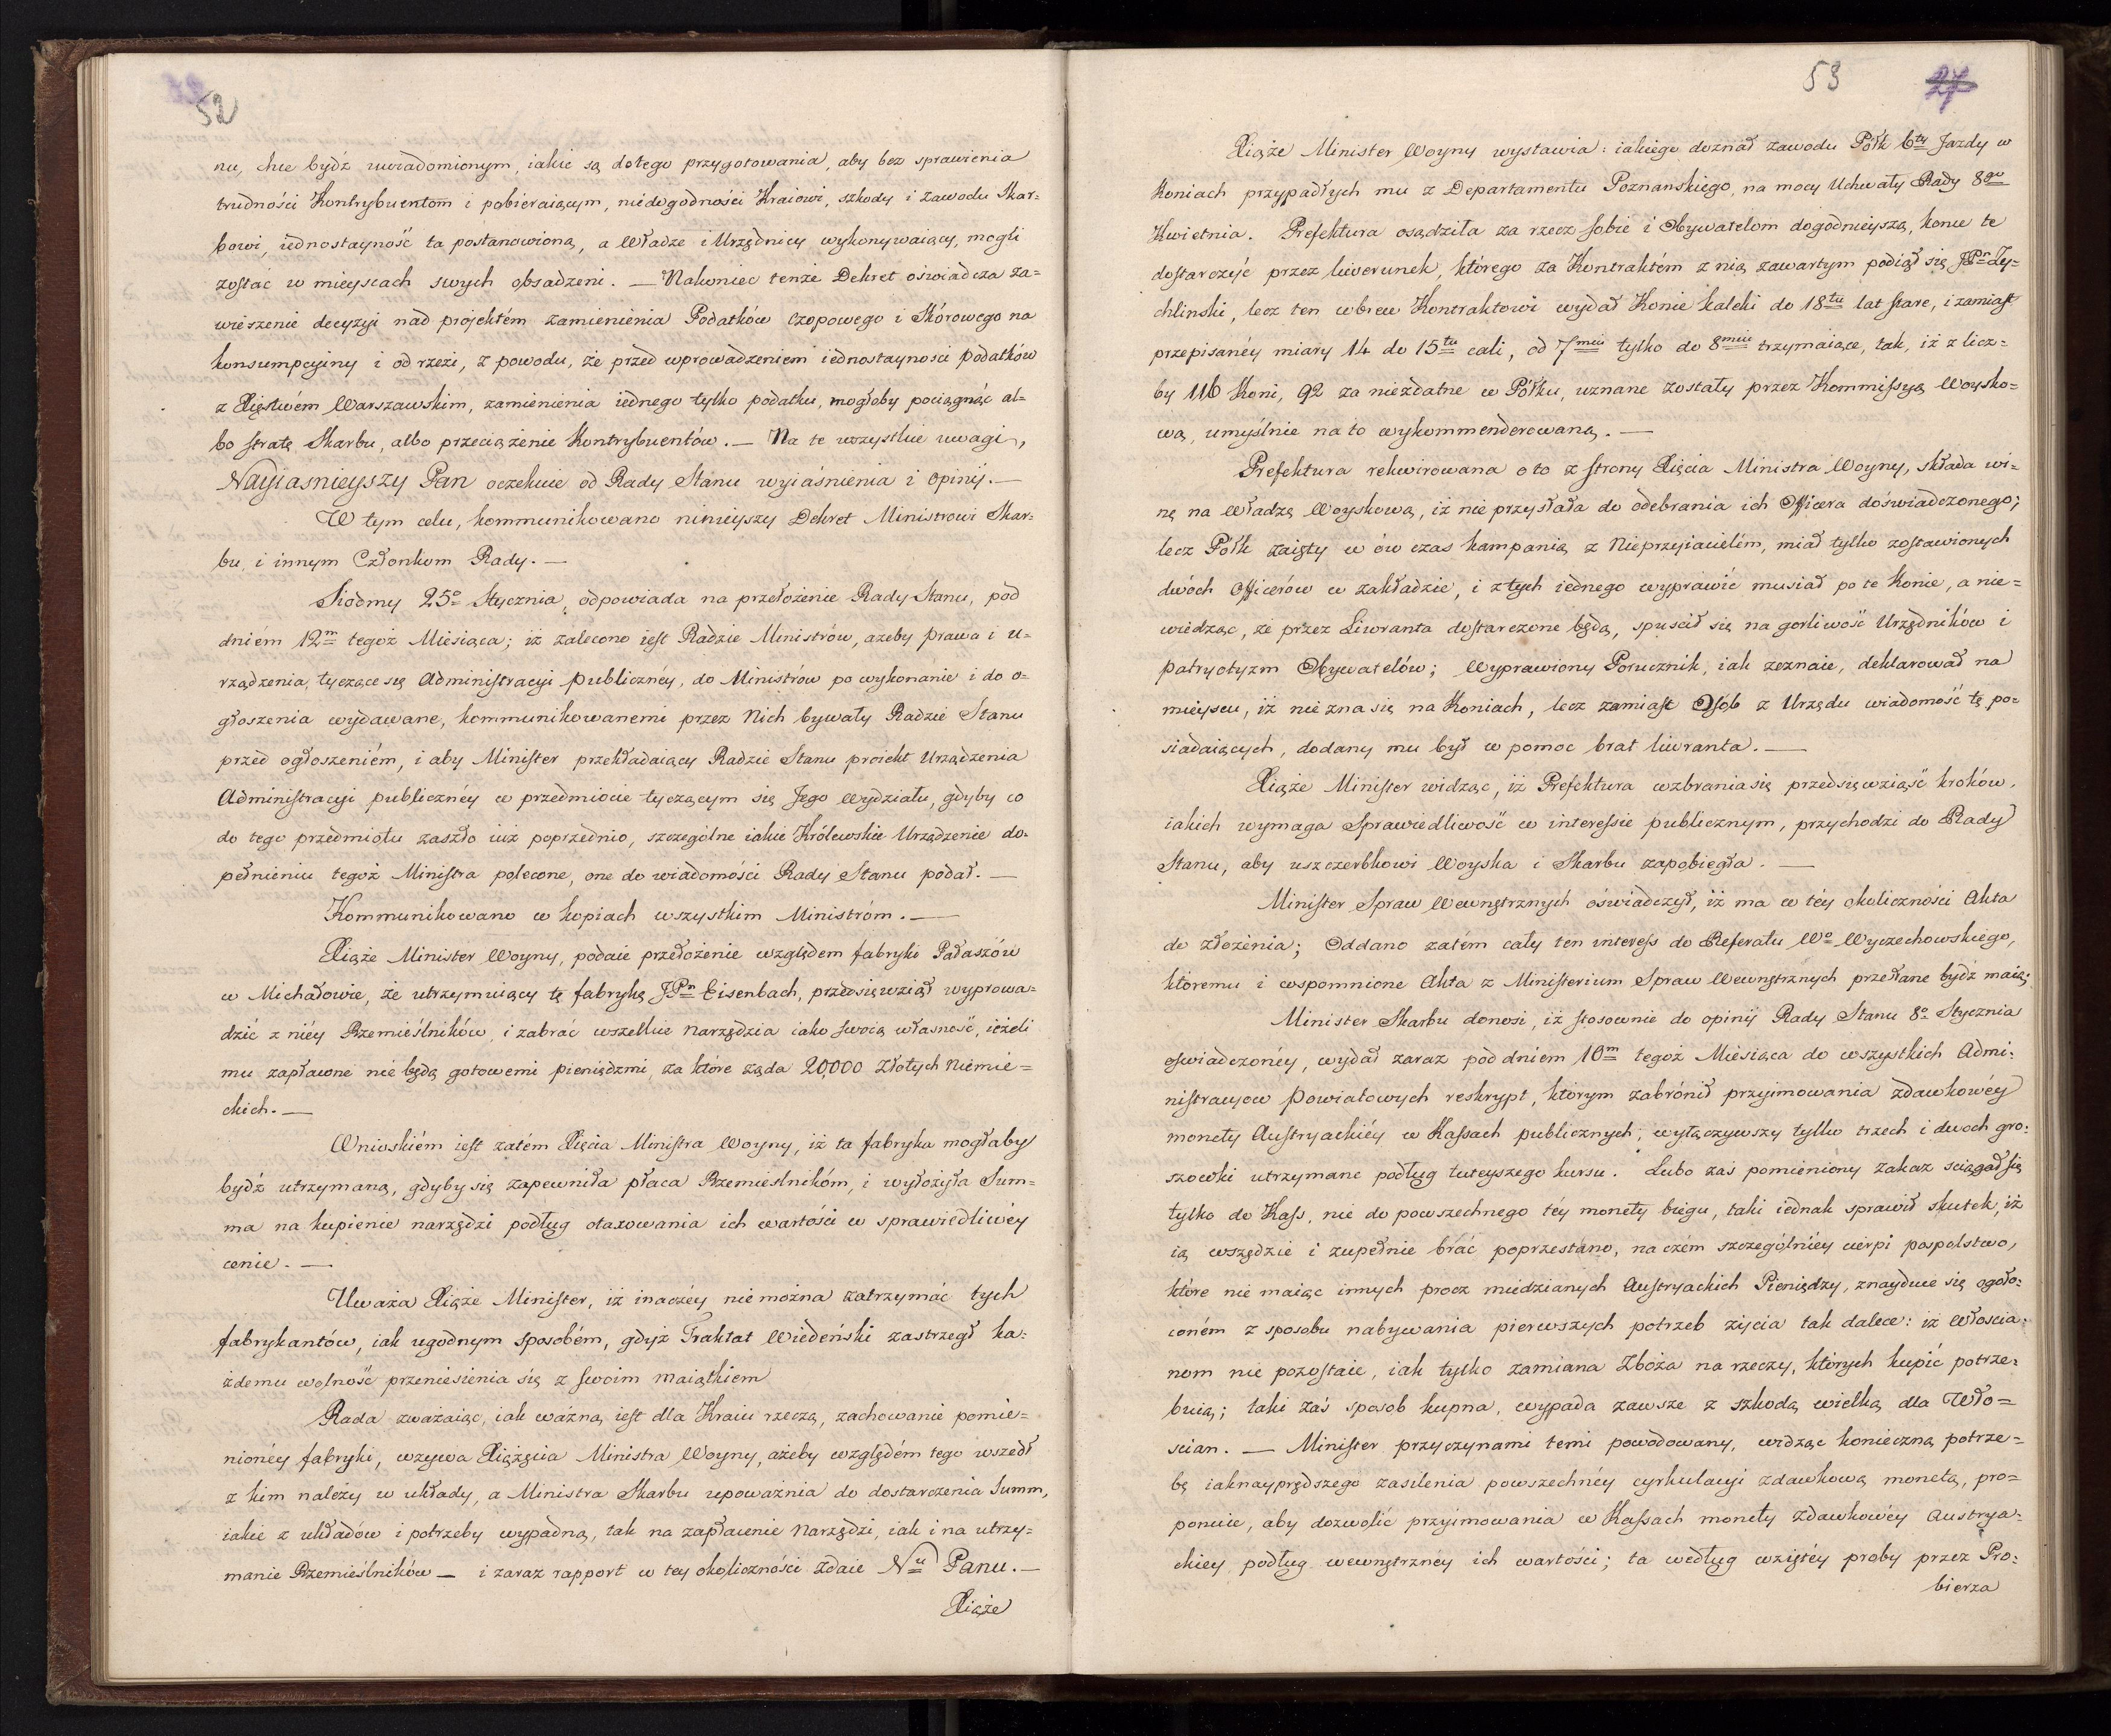 52
nu, chce bydź uwiadomionym, iakie są dotego przygotowania, aby bez sprawienia
trudności Kontrybuentom i pobieraiącym, niedogodności Kraiowi, szkody i zawodu Skar=
bowi, iednostayność ta postanowioną, a Władze i Urzędnicy wykonywaiący, mogli
zostać w mieyscach swych obsadzeni. — Nakoniec tenże Dekret oświadcza za=
wieszenie decyzyi nad projektém zamienienia Podatków Czopowego i Skórowego na
konsumpcyiny i od rzezi, z powodu, że przed wprowadzeniem iednostayności podatków
z Xięstwém Warszawskim, zamienienia iednego tylko podatku, mogłoby pociągnąć al=
bo stratę Skarbu, albo przeciążenie Kontrybuentów. — Na te wszystkie uwagi,
Nayiasnieyszy Pan oczekuie od Rady Stanu wyiaśnienia i opinij. —
W tym celu, kommunikowano ninieyszy Dekret Ministrowi Skar=
bu, i innym Członkom Rady. —
Siodmy 25o Stycznia, odpowiada na przełożenie Rady Stanu, pod
dniém 12m tegoż Miesiąca; iż zalecono iest Radzie Ministrów, ażeby prawa i u=
rządzenia, tyczące się Administracyi publicznéy, do Ministrów po wykonanie i do o=
głoszenia wydawane, kommunikowanemi przez Nich bywały Radzie Stanu
przed ogłoszeniém, i aby Minister przekładaiący Radzie Stanu proiekt Urządzenia
Administracyi publicznéy w przedmiocie tyczącym się Jego Wydziału, gdyby co
do tego przedmiotu zaszło iuż poprzednio, szczególne iakie Królewskie Urządzenie do=
pełnieniu tegoż Ministra polecone, one do wiadomości Rady Stanu podał. —
Kommunikowano w kopiach wszystkim Ministróm. —
Xiąże Minister Woyny, podaie przełożenie względem fabryki Pałaszów
w Michałowie, że utrzymuiący tę fabrykę JPn Eisenbach, przedsięwziął wyprowa=
dzić z niéy Rzemieślników, i zabrać wszelkie narzędzia iako swoią własność, ieżeli
mu zapłacone nie będą gotowemi pieniędzmi, za które żąda 20,000 Złotych Niemie=
ckich. —
Wnioskiém iest zatém Xięcia Ministra Woyny, iż ta fabryka mogłaby
bydź utrzymaną, gdyby się zapewniła płaca Rzemieslnikóm, i wyłożyła Sum=
ma na kupienie narzędzi podług otaxowania ich wartości w sprawiedliwéy
cenie. —
Uważa Xiąże Minister, iż inaczéy nie można zatrzymać tych
fabrykantów, iak ugodnym sposobém, gdyż Traktat Wiedeński zastrzegł ka=
żdemu wolność przeniesienia się z swoim maiątkiem
Rada zważaiąc, iak ważną iest dla Kraiu rzeczą, zachowanie pomie=
nionéy fabryki, wzywa Xiążęcia Ministra Woyny, ażeby względém tego wszedł
z kim należy w układy, a Ministra Skarbu upoważnia do dostarczenia Summ,
iakie z układów i potrzeby wypadną, tak na zapłacenie narzędzi, iak i na utrzy=
manie Rzemieślników — i zaraz rapport w tey okoliczności zdaie Nu Panu. —
Xiąże
53 27
Xiąże Minister Woyny wystawia: iakiego doznał zawodu Półk 6ty Jazdy w
Koniach przypadłych mu z Departamentu Poznanskiego, na mocy Uchwały Rady 8go
Kwietnia. Prefektura osądziła za rzecz sobie i Obywatelom dogodnieyszą, konie te
dostarczyć przez liwerunek, którego za Kontraktém z nią zawartym podiął się JPn Zy=
chlinski, lecz ten wbrew Kontraktowi wydał Konie kaleki do 18tu lat stare, i zamiast
przepisanéy miary 14 do 15tu cali, od 7miu tylko do 8miu trzymaiące, tak, iż z licz=
by 116 Koni, 92 za niezdatne w Półku, uznane zostały przez Kommissyą Woysko=
wą, umyślnie na to wykommenderowaną. —
Prefektura rekwirowana o to z strony Xięcia Ministra Woyny, składa wi=
nę na Władzę Woyskową, iż nie przysłała do odebrania ich Officera doświadczonego;
lecz Półk zaięty w ów czas kampanią z Nieprzyiacielém, miał tylko zostawionych
dwóch Officerów w zakładzie, i z tych iednego wyprawić musiał po te konie, a nie=
wiedząc, że przez Liwranta dostarczone będą, spuscił się na gorliwość Urzędników i
patryotyzm Obywatelów; Wyprawiony Porucznik, iak zeznaie, deklarował na
mieyscu, iż nie zna się na Koniach, lecz zamiast Osób z Urzędu wiadomość tę po=
siadaiących, dodany mu był w pomoc brat liwranta. —
Xiąże Minister widząc, iż Prefektura wzbrania się przedsięwziąść kroków,
iakich wymaga Sprawiedliwość w interessie publicznym, przychodzi do Rady
Stanu, aby uszczerbkowi Woyska i Skarbu zapobiegła. —
Minister Spraw Wewnętrznych oświadczył, iż ma w téy okoliczności Akta
do złożenia; Oddano zatém cały ten interess do Referatu Wo Wyczechowskiego,
któremu i wspomnione Akta z Ministerium Spraw Wewnętrznych przesłane bydź maią.
Minister Skarbu donosi, iż stosownie do opinij Rady Stanu 8o Stycznia
oświadczonéy, wydał zaraz pod dniem 10m tegoż Miesiąca do wszystkich Admi=
nistracyow Powiatowych reskrypt, którym zabrónił przyimowania zdawkowéy
monety Austryackiéy w Kassach publicznych, wyłączywszy tylko trzech i dwoch gro=
szowki utrzymane podług tuteyszego kursu. Lubo zaś pomieniony zakaz sciągał się
tylko do Kass, nie do powszechnego téy monety biegu, taki iednak sprawił skutek, iż
ią wszędzie i zupełnie brać poprzestano, na czém szczególniéy cierpi pospolstwo,
które nie maiąc innych procz miedzianych Austryackich Pieniędzy, znayduie się ogoło=
coném z sposobu nabywania pierwszych potrzeb życia tak dalece: iż Włoscia=
nom nie pozostaie, iak tylko zamiana Zboża na rzeczy, których kupić potrze=
buią; taki zaś sposob kupna, wypada zawsze z szkodą wielką dla Wło=
scian. — Minister przyczynami temi powodowany, widząc konieczną potrze=
bę iaknayprędszego zasilenia powszechnéy cyrkulacyi zdawkową monetą, pro=
ponuie, aby dozwolić przyimowania w Kassach monety zdawkowéy Austrya=
ckiey podług wewnętrznéy ich wartości; ta według wziętéy proby przez Pro=
bierza